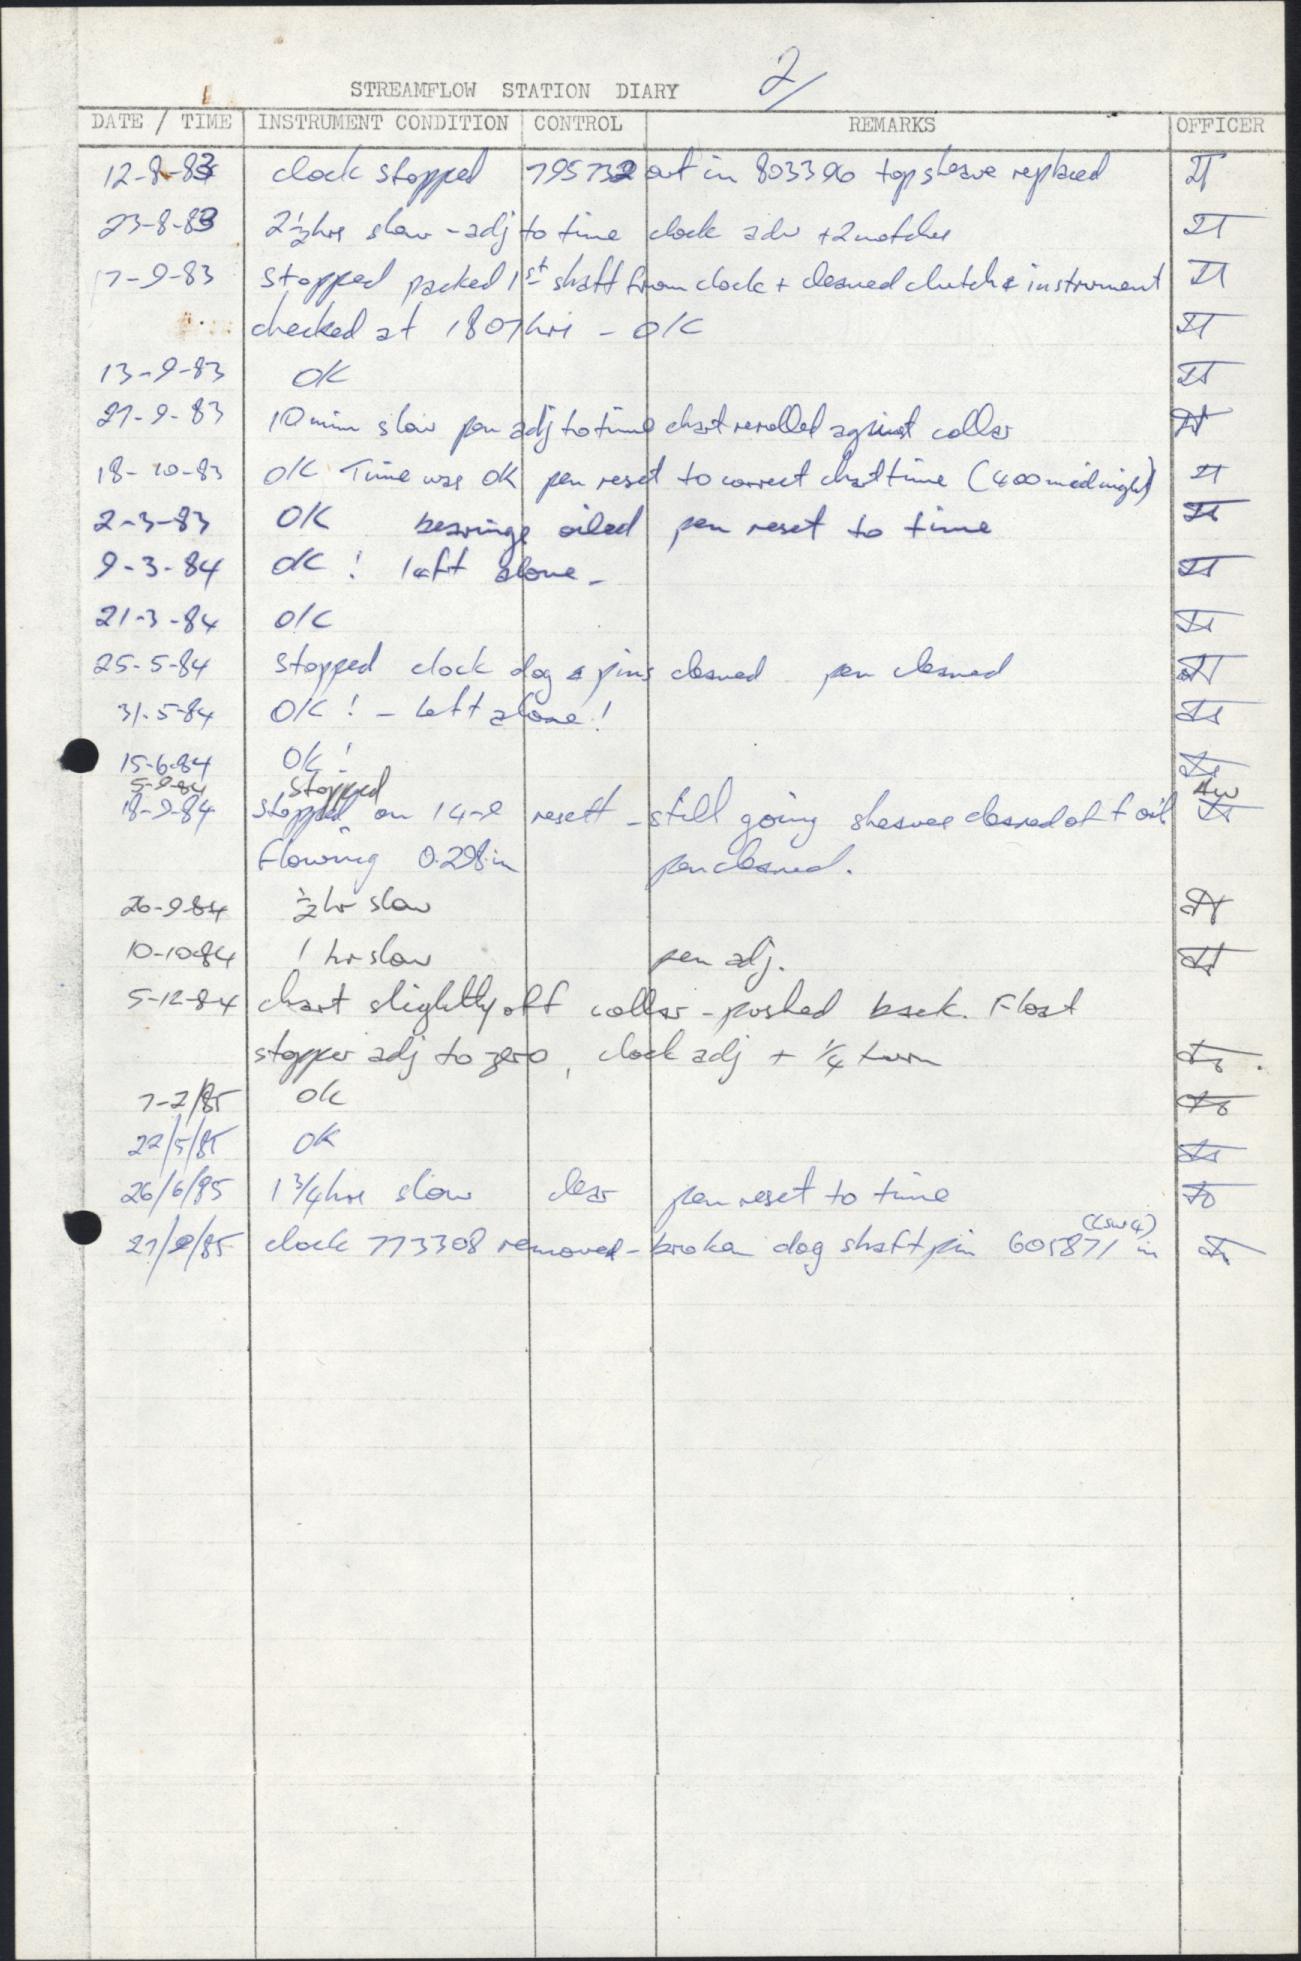 2/
STREAMFLOW STATION DIARY
DATE / TIME INSTRUMENT CONDITION CONTROL REMARKS OFFICER
12-8-83 clock stopped 795732 out in 803396 top sheave replaced
23-8-83 2½hrs slow - adj to time clock adv +2 notches
7-9-83 stopped packed 1st shaft from clock + cleaned clutch & instrument
checked at 1807hrs - OK
13-9-83 OK
27-9-83 10 min slow pen adj to time chart rerolled against collar
18-10-83 OK Time was OK pen reset to correct chart time (400 midnight)
2-3-83 OK bearings oiled pen reset to time
9-3-84 OK! left alone -
21-3-84 OK
25-5-84 stopped clock dog & pins cleaned pen cleaned
31-5-84 OK! - Left alone!
15-6-84 OK!
5-9-84 stopped
18-9-84 stopped on 14-9 resett - still going sheaves cleaned of oil
flowing 0.298in pen cleaned.
26-9-84 ½ hr slow
10-10-84 1 hr slow pen adj.
5-12-84 chart slightly off collar - pushed back. Float
stopper adj to zero, clock adj + ¼ turn
7-2/85 OK
22/5/85 OK
26/6/85 1¾hrs slow clear pen reset to time
27/9/85 clock 773308 removed - broken dog shaft pin 605871 in